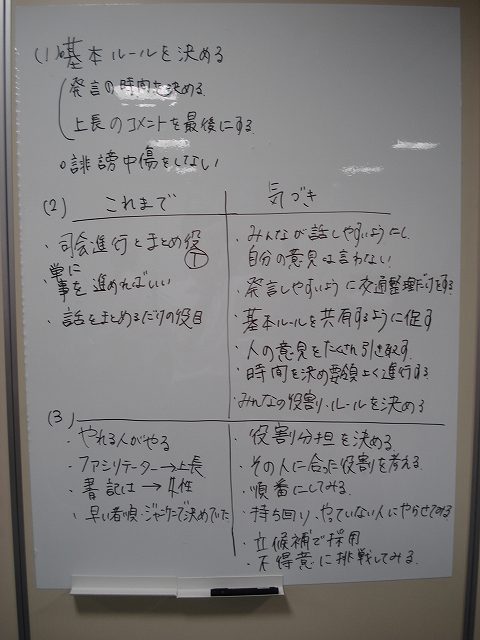 (1) 基本ルールを決める
発言の時間を決める
上長のコメントを最後にする
○誹謗中傷をしない
(2) これまで 気づき
・司会進行とまとめ役
・単に
事を進めればいい
・話をまとめるだけの役目
・みんなが話しやすいようにし
自分の意見は言わない
・発言しやすいように交通整理だけをする
・基本ルールを共有するように促す
・人の意見をたくさん引き取す
・時間を決め要領よく進行する
・みんなの役割・ルールを決める
(3)
・やれる人がやる
・ファシリテーター→上長
・書記は→女性
・早い者順・ジャンケンで決めていた
・役割分担を決める
・その人に合った役割を考える
・順番にしてみる
・持ち回り、やっていない人にやらせてみる
・立候補で採用
・不得意に挑戦してみる